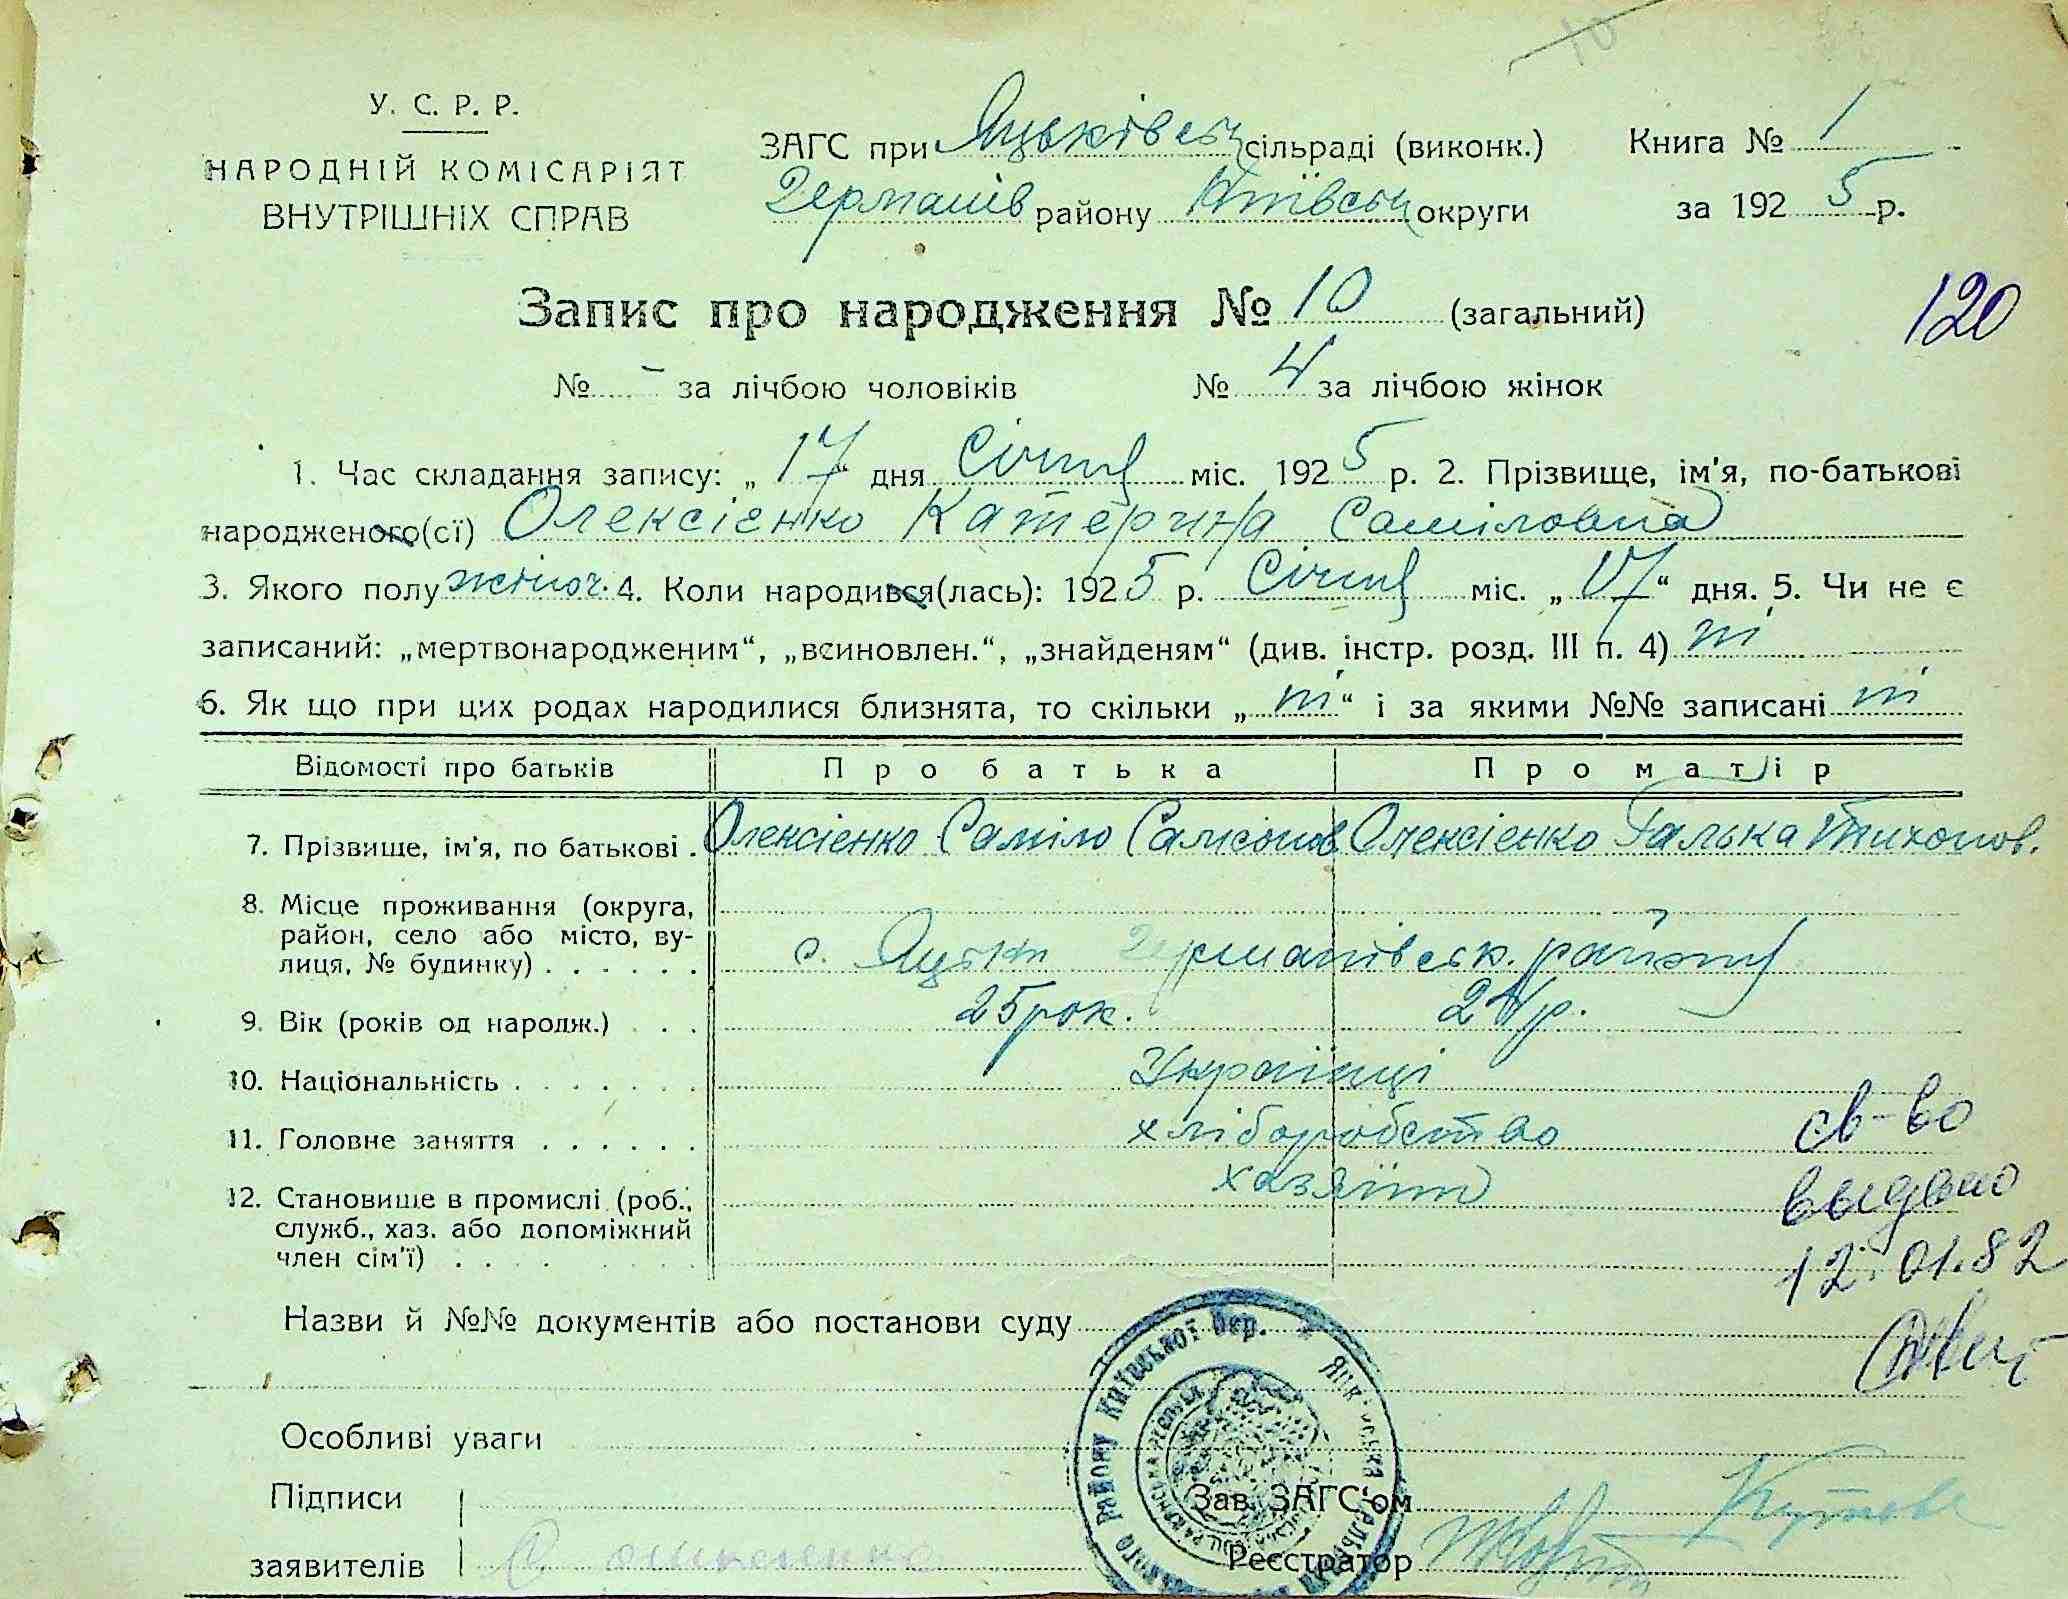 10
У. С. Р. Р.
НАРОДНІЙ КОМІСАРІЯТ
ВНУТРІШНІХ СПРАВ
ЗАГС при Яцьківськ сільраді (виконк.) Книга № 1
Германів району Київськ округи за 1925 р.
Запис про народження № 10 (загальний)
120
№ - за лічбою чоловіків № 4 за лічбою жінок
1. Час складання запису: „17“ дня Січня міс. 1925 р. 2. Прізвище, ім'я, по-батькові
народженого(сї) Олексієнко Катерина Саміловна
3. Якого полу жіноч. 4. Коли народився(лась): 1925 р. Січня міс. „17“ дня. 5. Чи не є
записаний: „мертвонародженим“, „всиновлен.“, „знайденям“ (див. інстр. розд. III п. 4) ні
6. Як що при цих родах народилися близнята, то скільки „ні“ і за якими №№ записані ні
Відомості про батьків Про батька Про матір
7. Прізвище, ім'я, по батькові . Олексієнко Саміло Самсонов. Олексієнко Галька Тихонов.
8. Місце проживання (округа,
район, село або місто, ву-
лиця, № будинку) . . . . . . с. Яцьки Германівськ. району
9. Вік (років од народж.) . . . 25 рок. 24 р.
10. Національність . . . . . . . Українці
11. Головне заняття . . . . . . хліборобство
12. Становище в промислі (роб.,
служб., хаз. або допоміжний
член сім'ї) . . . . хазяїни
св-во
выдано
12.01.82
Назви й №№ документів або постанови суду
Особливі уваги
Підписи
заявителів
Зав. ЗАГС'ом
Реєстратор
району Київської Окр.